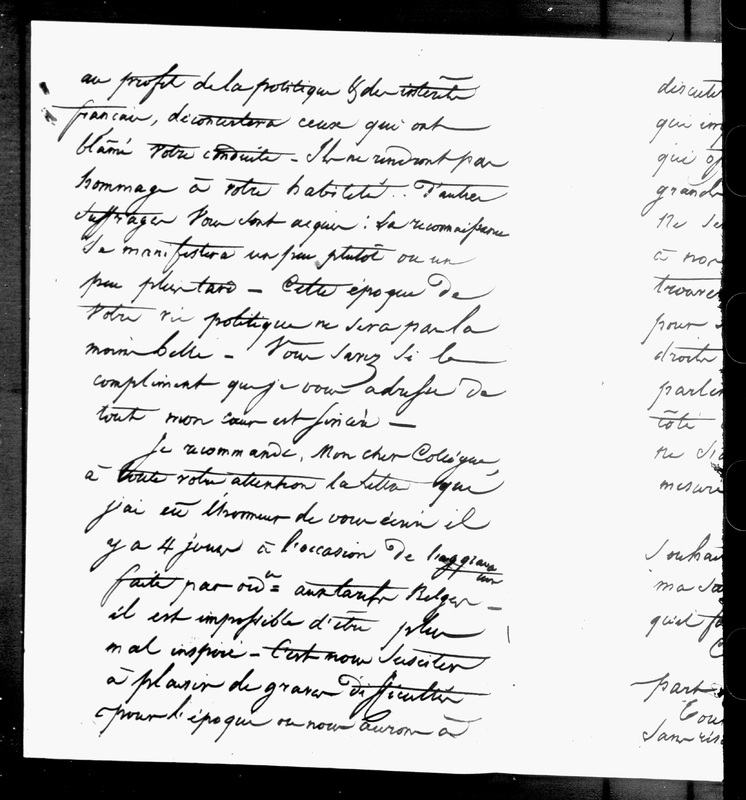 au profit de la politique & des intérêts
français, déconcertera ceux qui ont
blâmé votre conduite - Ils ne rendront pas
hommage à votre habileté.. D'autres
suffrages vous sont acquis : La reconnaissance
se manifestera un peu plutôt ou un
peu plus tard - Cette époque de
votre vie politique ne sera pas la
moins belle - Vous savez si le
compliment que je vous adresse de
tout mon cœur est sincère -
Je recommande, Mon cher Collègue,
à toute votre attention la lettre que
j'ai eu l'honneur de vous écrire il
y a 4 jours à l'occasion de l'aggravation
faite par ord.ce = aux tarifs Belges -
il est impossible d'être plus
mal inspiré - C'est nous susciter
à plaisir de graves difficultés
pour l'époque ou nous aurons à
discuter
qui
qui
grande
ne
à
trouver
pour
droite
parle
côté
ne
mesure
souhait
ma
qu'il
part
sans